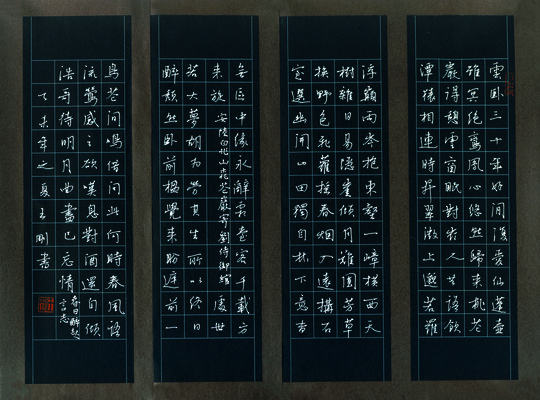 雲卧三十年好閒復愛仙蓬壺
雖冥絕鸞鳳心悠然歸來桃花
巖得憩雲窗眠對嶺人共語飲
潭猿相連時升翠微上邈若羅
浮巔兩岑抱東壑一嶂橫西天
樹雜日易隱崖傾月難圓芳草
換野色飛蘿搖春烟入遠構石
室選幽開山田獨自林下意杳
無區中緣永辭霜臺客千載方
來旋 安陸白兆山桃花巖寄劉侍御綰 處世
若大夢胡为勞其生所以終日
醉頹然卧前楹覺來盼庭前一
鳥花間鳴借問此何時春風語
流鶯感之欲嘆息對酒還自傾
浩歌待明月曲盡已忘情 春日醉起言志
乙未年之夏王刚書